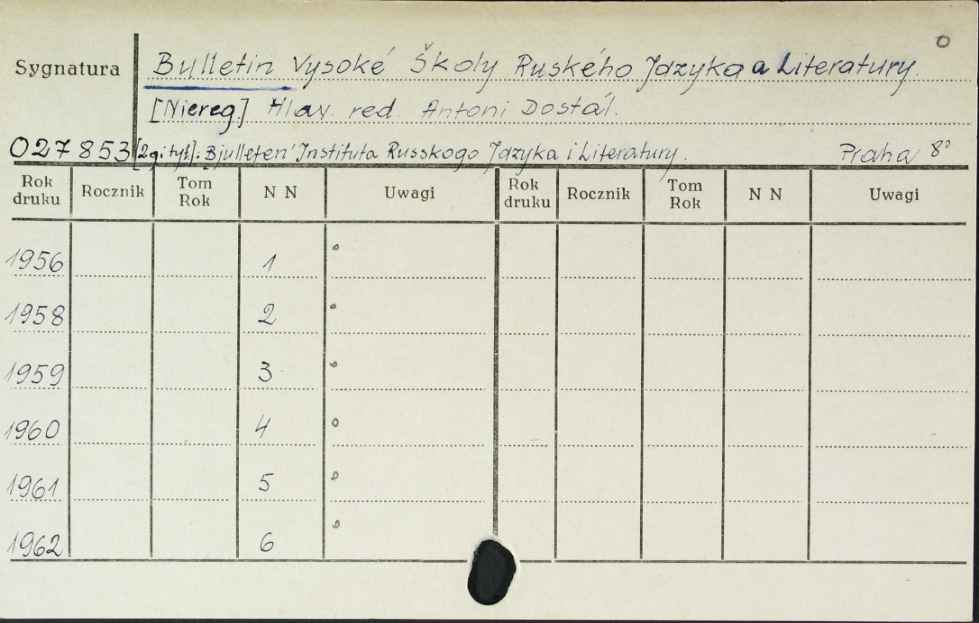 o
Sygnatura Bulletin Vysoké Školy Ruského Jazyka a Literatury.
[Niereg.] Hlav. red. Antoni Dostál.
027853 [2gi tyt]: Bjulleten' Instituta Russkogo Jazyka i Literatury. Praha 8°
Rok druku Rocznik Tom Rok N N Uwagi Rok druku Rocznik Tom Rok N N Uwagi
1956 1 o
1958 2 o
1959 3 o
1960 4 o
1961 5 o
1962 6 o